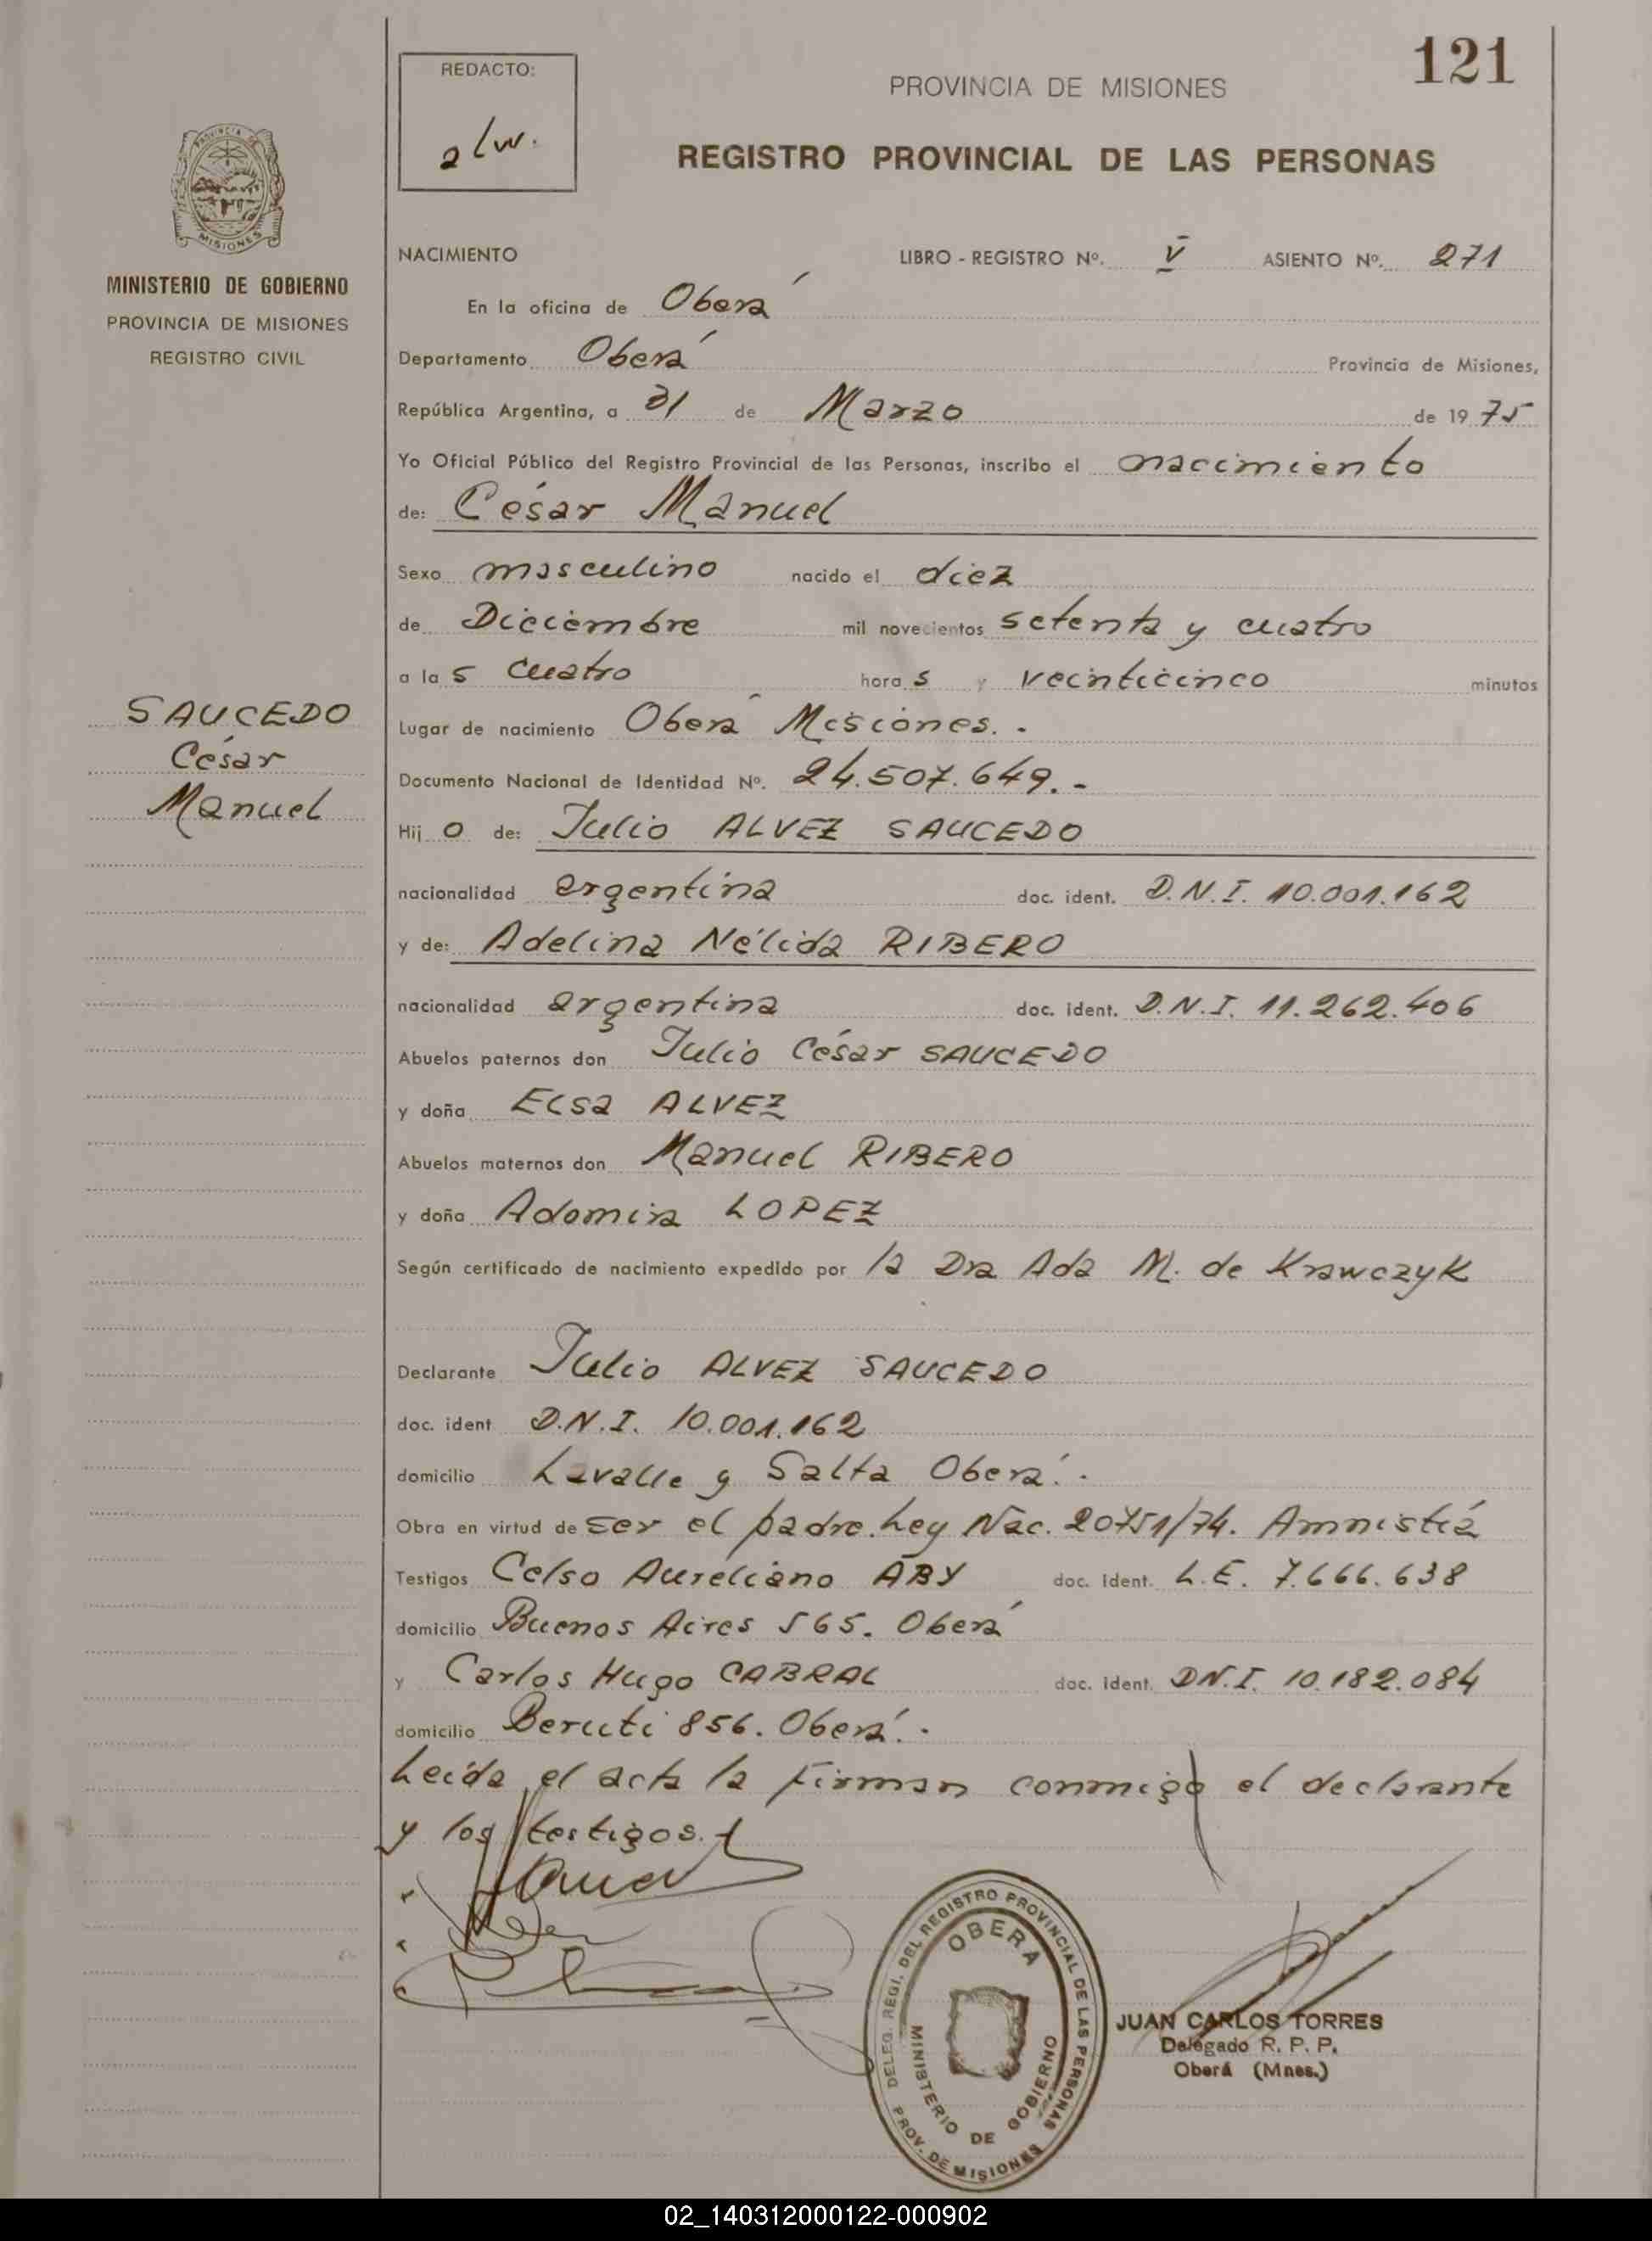 121
REDACTO:
PROVINCIA DE MISIONES
REGISTRO PROVINCIAL DE LAS PERSONAS
PROVINCIA DE
MISIONES
MINISTERIO DE GOBIERNO
PROVINCIA DE MISIONES
REGISTRO CIVIL
NACIMIENTO LIBRO - REGISTRO Nº. V ASIENTO Nº. 271
En la oficina de Oberá
Departamento Oberá Provincia de Misiones,
República Argentina, a 31 de Marzo de 1975
Yo Oficial Público del Registro Provincial de las Personas, inscribo el nacimiento
de: César Manuel
Sexo masculino nacido el diez
de Diciembre mil novecientos setenta y cuatro
a las cuatro horas y veinticinco minutos
SAUCEDO
César
Manuel
Lugar de nacimiento Oberá Misiones.-
Documento Nacional de Identidad Nº. 24.507.649.-
Hijo de: Julio ALVEZ SAUCEDO
nacionalidad argentina doc. ident. D.N.I. 10.001.162
y de: Adelina Nélida RIBERO
nacionalidad argentina doc. ident. D.N.I. 11.262.406
Abuelos paternos don Julio César SAUCEDO
y doña Elsa ALVEZ
Abuelos maternos don Manuel RIBERO
y doña Adomira LOPEZ
Según certificado de nacimiento expedido por la Dra Ada M. de Krawczyk
Declarante Julio ALVEZ SAUCEDO
doc. ident D.N.I. 10.001.162
domicilio Lavalle y Salta Oberá.-
Obra en virtud de ser el padre. Ley Nac. 20751/74. Amnistiá
Testigos Celso Aureliano ABY doc. ident. L.E. 7.666.638
domicilio Buenos Aires 565. Oberá
y Carlos Hugo CABRAL doc. ident. DN.I. 10.182.084
domicilio Beruti 856. Oberá.-
Leída el acta la firman conmigo el declarante
y los testigos.
DELEG. REGI. DEL REGISTRO PROVINCIAL DE LAS PERSONAS
PROV. DE MISIONES
OBERA
MINISTERIO DE GOBIERNO
JUAN CARLOS TORRES
Delegado R. P. P.
Oberá (Mnes.)
02_140312000122-000902